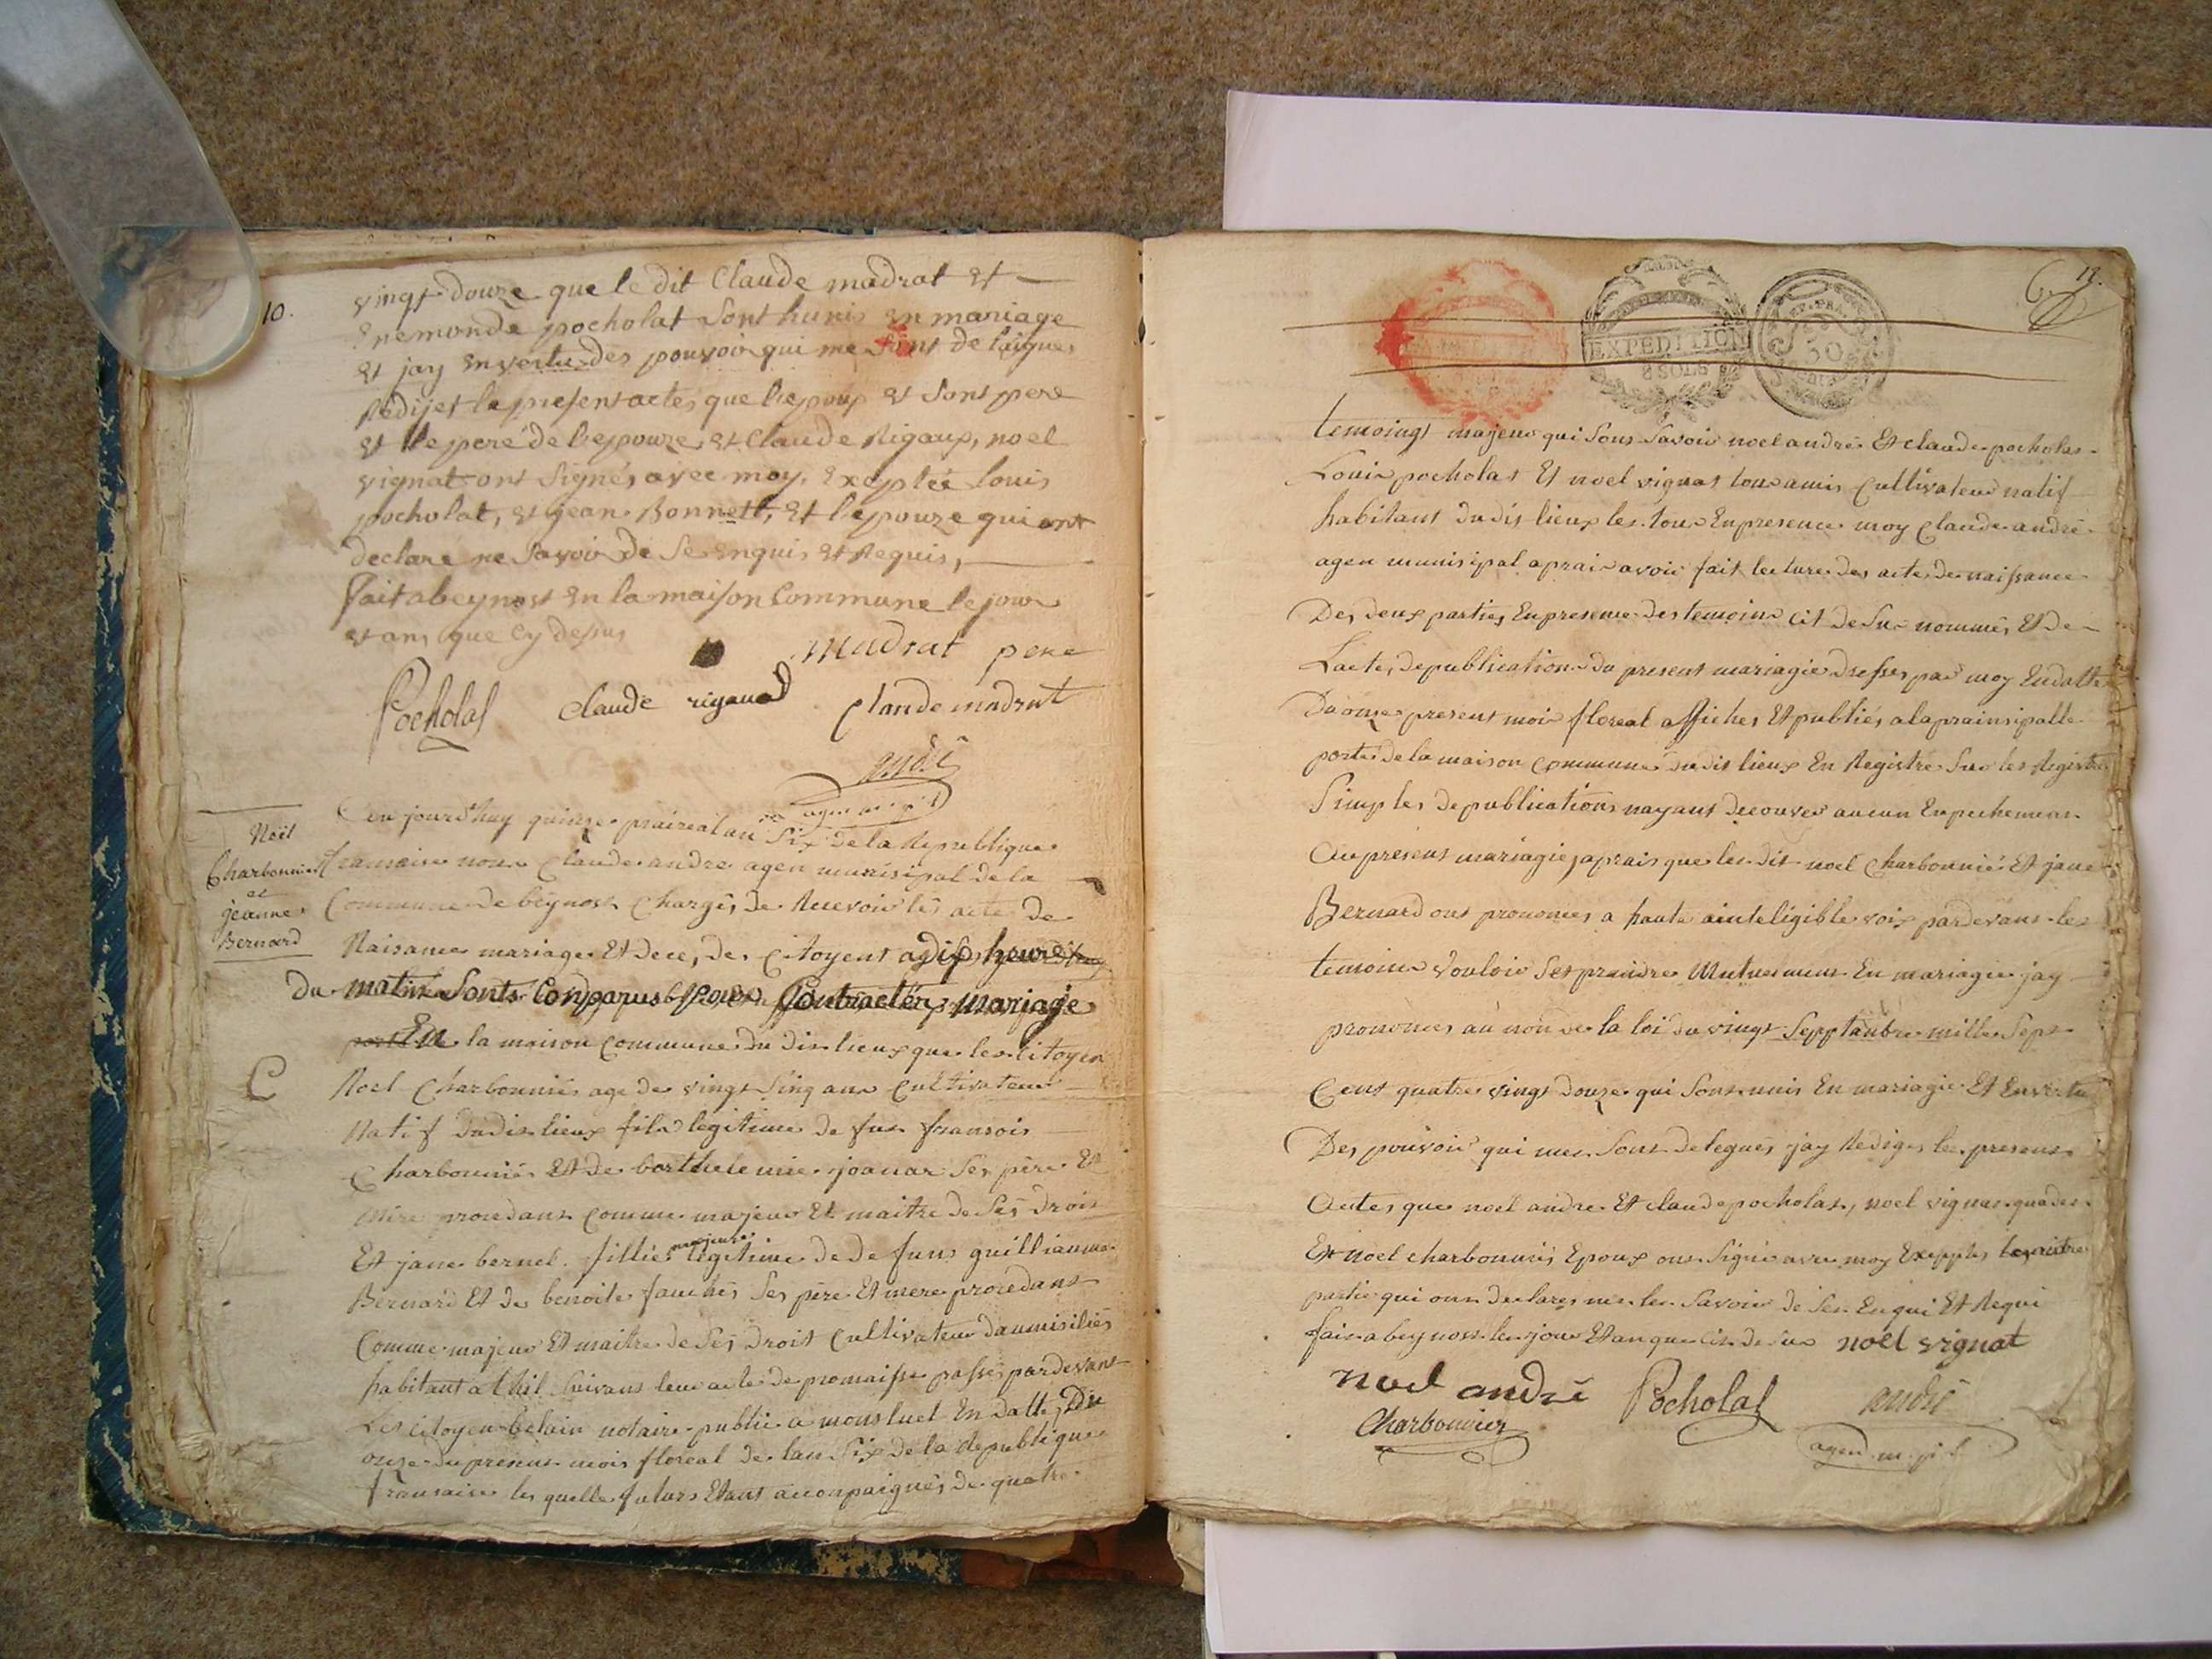 10.
vingt douze que le dit Claude madrat et
Enemonde pocholat Sont hunis en mariage
et jay en vertu des pouvoir qui me sont de laigues
Redijet le presentactes que lepoux et Sont pere
et le pere de lepouze, et Claude Rigaux, noel
vignat ont Signés avec moy, Exceptée louis
pocholat, et jean Bonnett, et lepouze qui ont
declaré ne Savoir de Se Enquis et Requis,
fait a beynost En la maison Commune le jour
et ans que Cy dessus
madrat pere
Pocholat claude rigaud claude madrat
andré
agen m. p. l
Noël
Charbonnier
et
jeanne
Bernard
Ceu jourd'huy quinze prairéal an Six de la Republique
francaise nous Claude andre agen munisipal de la
Commune de béynost Chargés de Recevoir lés acte de
Naisance mariage Et dece, des Citoyent a dix heure
du matin Sonts Conparus pour Contractér mariage
En la maison Commune du dis lieux que les Citoyen
C
Noel Charbonniés age de vingt Sinq ans Cultivateur
Natif dudis lieux fils legitime de fut fransois
Charbonniés Et de barthelemie joanar Ses père Et
Mère procedans Comme majeur Et maitre de Sés drois
majeure
Et jane bernet. filliés legitime de defuns guilliaume
Bernard Et de benoite fauchés Ses père Et mere procedans
Comme majeur Et maitre de Sés droit Cultivateur daumisiliés
habitant a thil Suivans leur acte de promaisse passés pardevant
Les Citoyen belain notaire public a monsluel En datte, Du
onze du presens mois floreal de lan Six de la Republique
fransaise les quelle futurs Etant acconpaignés de quatre
12.
EXPEDITION
8 SOLS
30
temoingt majeur qui Sons Savoir noel andré Et claude pocholas
Louis pocholat Et noel vignat tous amis Cultivateur natif
habitant du dis lieux les tous En presence moy Claude andré
agen munisipal aprais avoir fait lecture des acte de naissance
Des deux parties En presence des temoins cit de Sus nommés Et de
Lacte, de publication du present mariagie dressés par moy En datte
Du onze present mois floreal affichés Et publiés a la prainsipalle
porte de la maison Commune du dis lieux En Registré Sur les Registre
Simples de publications nayant decouver aucun Enpechemens
Au presens mariagie, aprais que les dit noel Charbonniés Et jane
Bernard ons prononcés a haute ainteligible voix pardevans les
temoins Vouloir Ses praindre Mutuement En mariagie jay
prononces au nom de la loi du vingt Septtanbre mille Sept
Cens quatre vingt douze qui Sons unis En mariagie Et En vertu
Des pouvoir qui me Sons delegués jay Rediges le presens
Actes que noel andre Et claude pocholas, noel vignas
Et noel charbonniés Epoux ons Signé avec moy Exepptes les autre
partie qui ons declares ne les Savoir de Ses Enqui Et Requi
fait a beynost les jour Et an que ci de Sus noël vignat
noel andré Pocholat andré
Charbonnier agen m. p. l